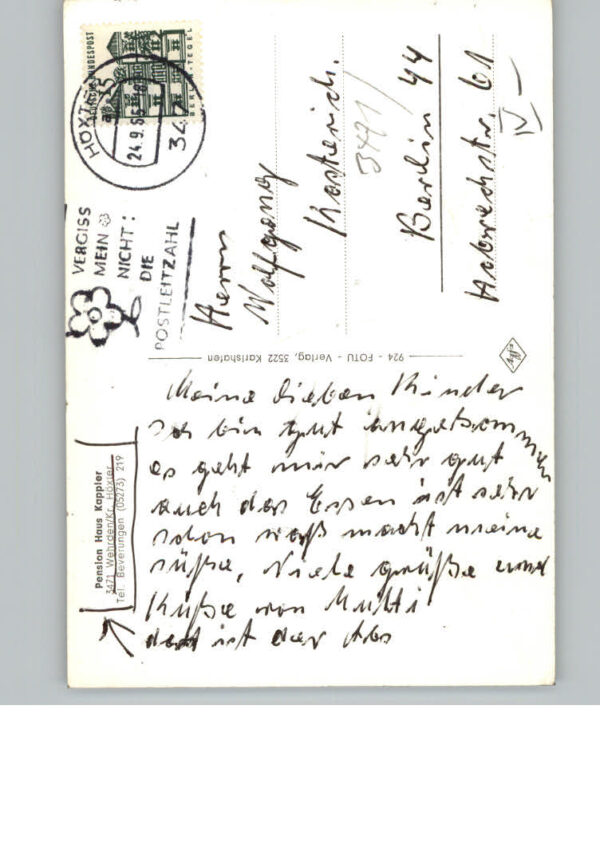 Pension Haus Kappler
3471 Wehrden/Kr. Höxter
Tel. Beverungen (05273) 219
Meine lieben Kinder
bin gut angekommen
es geht mir sehr gut
auch das Essen ist sehr
schon waß macht meine
süße, Viele grüße und
Küße von Mutti
ist der Abs
924 - FOTU - Verlag, 3522 Karlshafen
VERGISS
MEIN
NICHT:
DIE
POSTLEITZAHL
HÖXT
24.9.
347
DEUTSCHE BUNDESPOST
15
BERLIN-TEGEL
Herrn
Wolfgang
Kosterich.
3471/
Berlin 44
Hobrechtstr. 61
IV